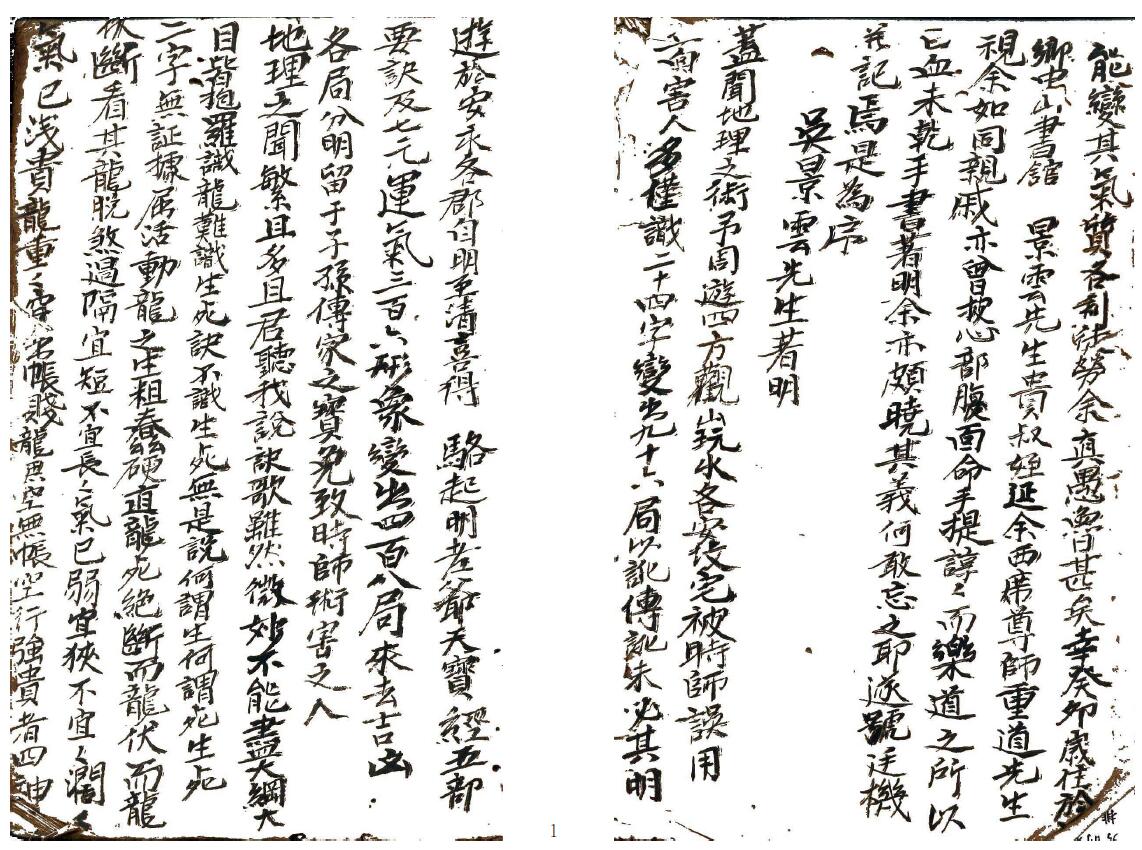 能變其氣質各剖徒勞余真愚魯甚矣幸癸卯歲往於
鄉中山書館　景雲先生貴叔姪延余西席尊師重道先生
視余如同親戚亦曾披心部腹面命手提諄〻而樂道之所以
已血未乾手書著明余亦頗曉其義何敢忘之耶遂號廷機
記焉是為序
吳景雲先生著明
蓋聞地理之術予周遊四方觀山玩水各安坟宅被時師誤用
害人多僅識二十四字變出九十六局以訛傳訛未必其明
遊於安永各郡自明至清喜得　駱起明老爺天寶經五部
要訣及七元運氣三百六形象變出四百八局來去吉凶
各局分明留于子孫傳家之寶免致時師術害之人
地理之聞繁且多且君聽我說訣歌雖然微妙不能盡大綱大
目皆抱羅識龍難識生死訣不識生死無是說何謂生何謂死生死
二字無証據屈活動龍之生粗蠢硬直龍死絕斷而龍伏而龍
斷看其龍脫煞過隔宜短不宜長〻氣已弱宜狹不宜〻濶〻
氣已淺貴龍重〻穿出帳賤龍無帳空行強貴者四
1